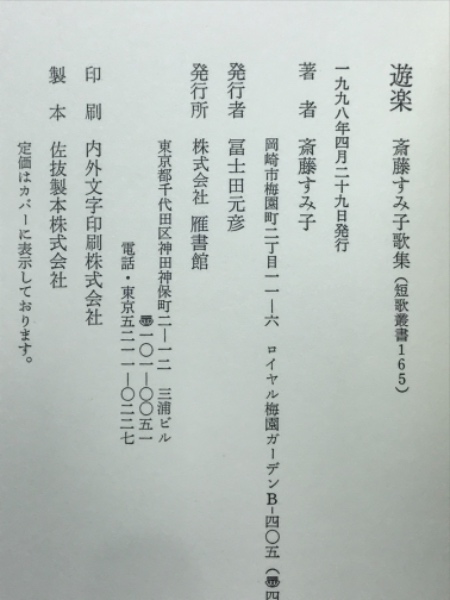 遊楽 斎藤すみ子歌集(短歌叢書165)
一九九八年四月二十九日発行
著者 斎藤すみ子
岡崎市梅園町二丁目一一―六 ロイヤル梅園ガーデンB-四〇五(〠四
発行者 冨士田元彦
発行所 株式会社 雁書館
東京都千代田区神田神保町二―一二 三浦ビル
〠一〇一―〇〇五一
電話・東京五二一一―〇二二七
印刷 内外文字印刷株式会社
製本 佐抜製本株式会社
定価はカバーに表示しております。